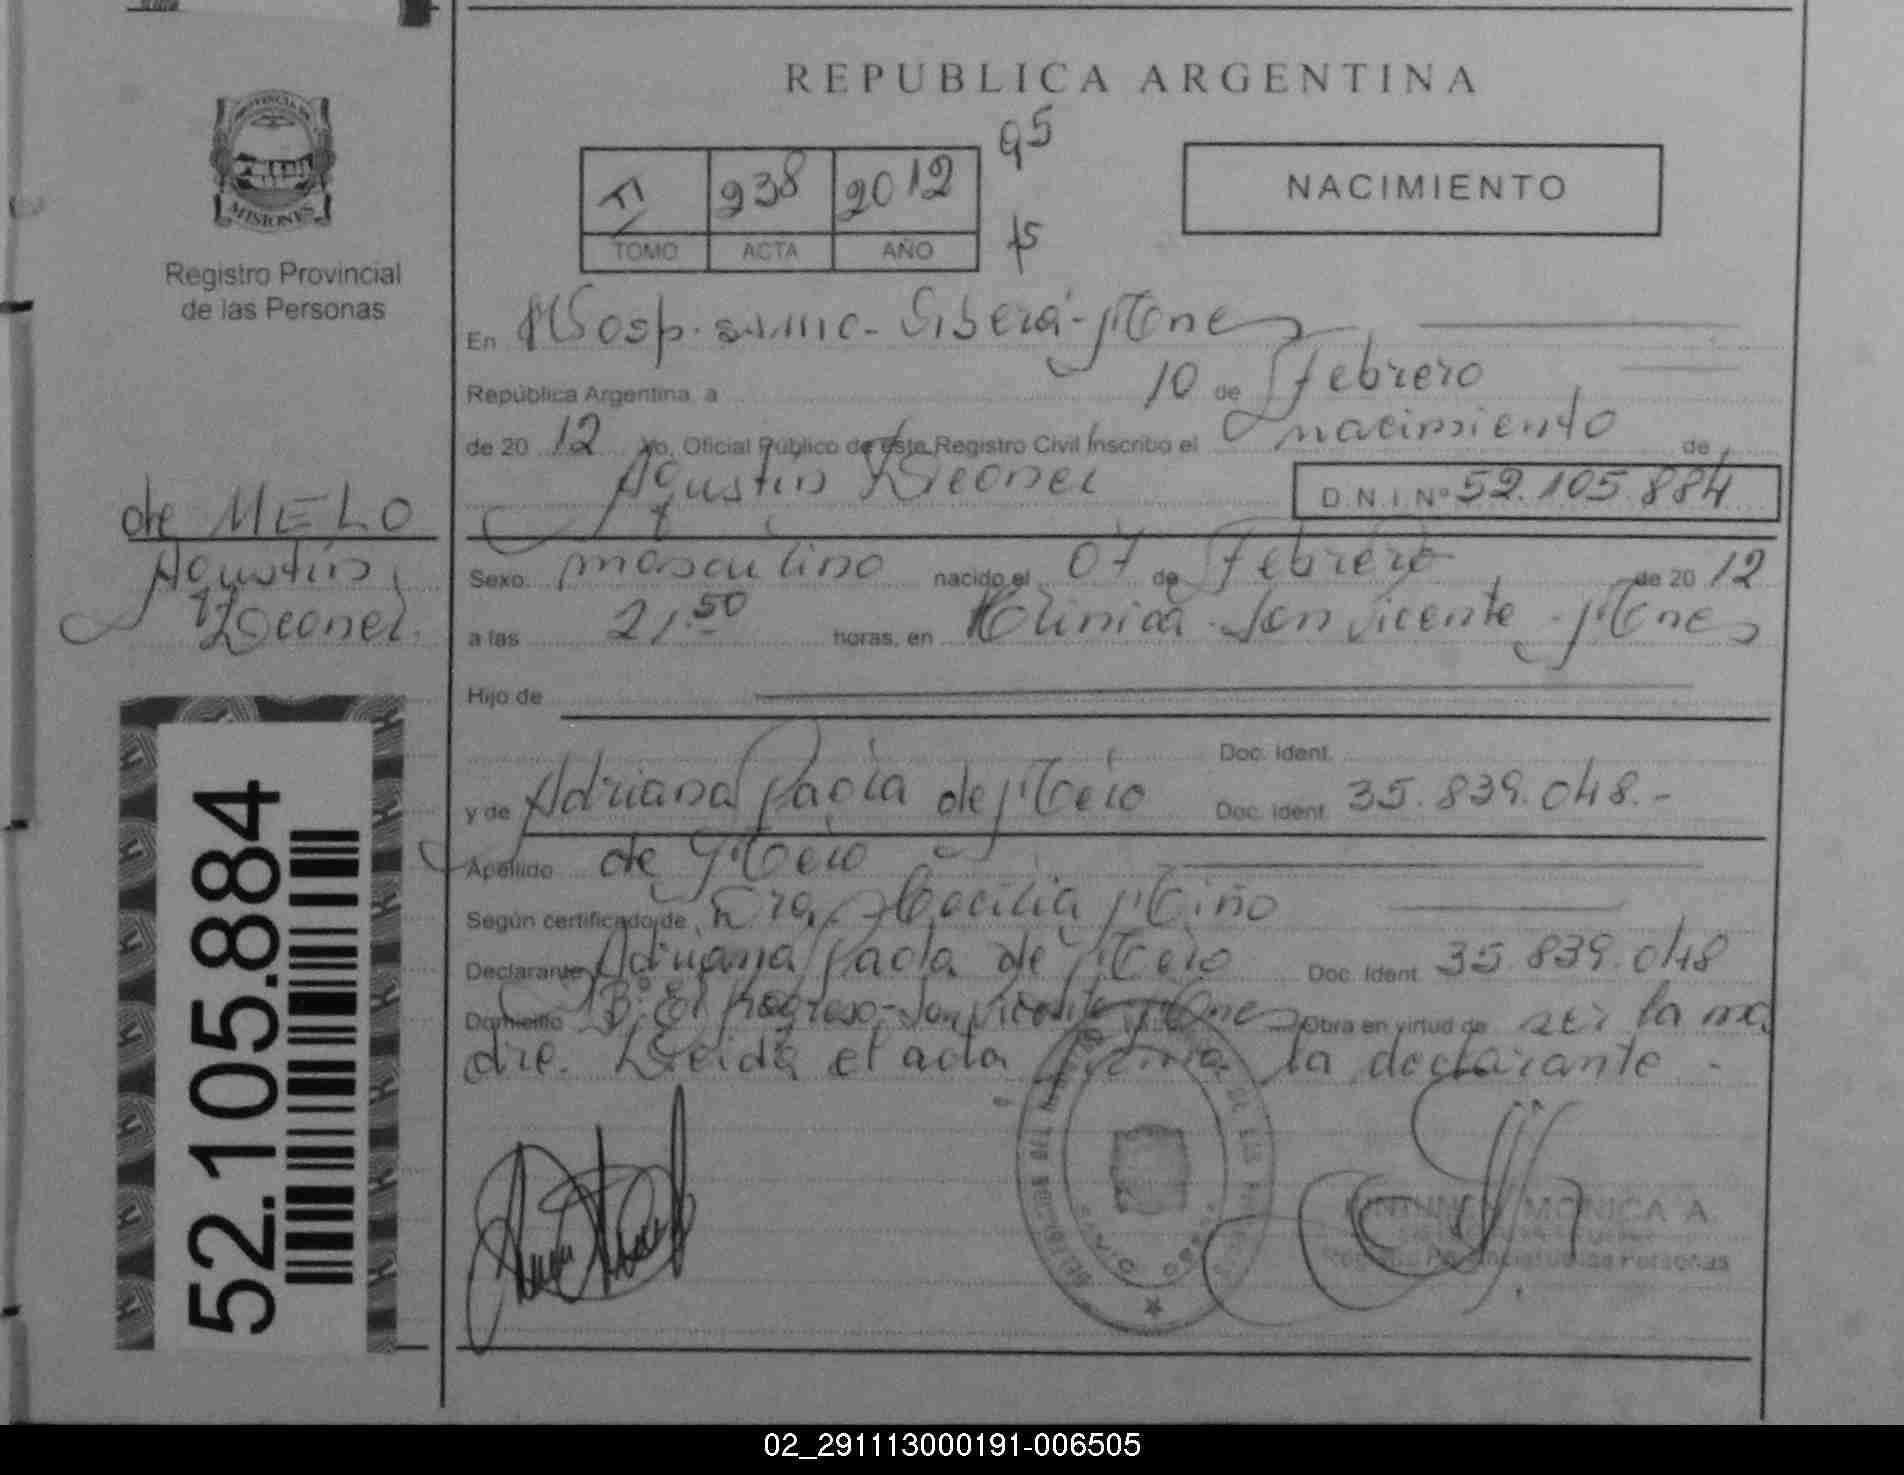 REPUBLICA ARGENTINA
PROVINCIA DE
MISIONES
Registro Provincial
de las Personas
938 2012
TOMO ACTA AÑO
95
15
NACIMIENTO
En Hosp. Liberá - Mnes
República Argentina, a 10 de Febrero
de 20 12 Yo, Oficial Público de este Registro Civil Inscribo el nacimiento de
Agustín Leonel D.N.I. Nº 52.105.884
de MELO
Agustín
Leonel.
Sexo masculino nacido el 07 de Febrero de 20 12
a las 21.50 horas, en Clinica San Vicente - Mnes
Hijo de
Doc. Ident.
y de Adriana Paola de Melo Doc. Ident. 35.839.048.-
Apellido de Melo
Según certificado de Dra. Cecilia Miño
Declarante Adriana Paola de Melo Doc. Ident. 35.839.048
Domicilio Bº El Progreso - San Vicente Mnes Obra en virtud de ser la ma
dre. Leída el acta firma la declarante.
52.105.884
MONICA A.
Registro Provincial de las Personas
02_291113000191-006505